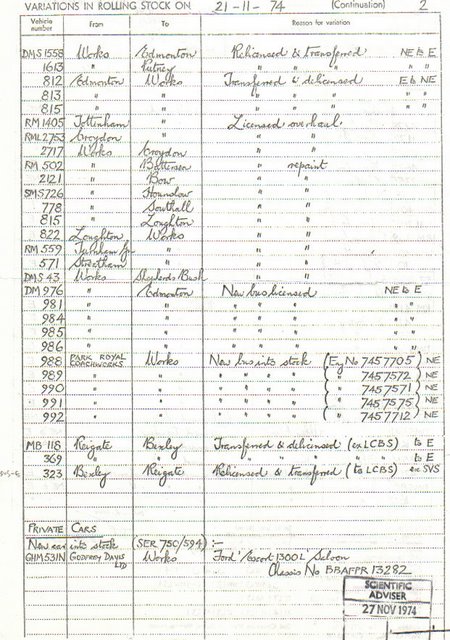 VARIATIONS IN ROLLING STOCK ON 21-11-74 (Continuation) 2
Vehicle number From To Reason for variation
DMS 1558 Works Edmonton Relicensed & transferred NE to E
1613 " Putney " " " " "
812 Edmonton Works Transferred & delicensed E to NE
813 " " " " " " "
815 " " " " " " "
RM 1405 Tottenham " Licensed overhaul.
RML 2753 Croydon " " "
2717 Works Croydon " "
RM 502 " Battersea " repaint
2121 " Bow " "
SMS 726 " Hounslow " "
778 " Southall " "
815 " Loughton " "
822 Loughton Works " "
RM 559 Turnham Grn " " "
571 Streatham " " "
DMS 43 Works Shepherds Bush " "
DM 976 " Edmonton New bus licensed NE to E
981 " " " " " " "
984 " " " " " " "
985 " " " " " " "
986 " " " " " " "
988 PARK ROYAL COACHWORKS Works New bus into stock (Eng No 7457705) NE
989 " " " " " " ( " 7457572 ) NE
990 " " " " " " ( " 7457571 ) NE
991 " " " " " " ( " 7457575 ) NE
992 " " " " " " ( " 7457712 ) NE
MB 118 Reigate Bexley Transferred & delicensed (ex LCBS) to E
369 " " " " " " " to E
323 Bexley Reigate Relicensed & transferred (to LCBS) ex SVS
PRIVATE CARS
New car into stock (SER 750/594) :-
GHM 531N GODFREY DAVIS LTD Works Ford 'Escort 1300L' Saloon
Chassis No BBAFPR 13282
SCIENTIFIC
ADVISER
27 NOV 1974